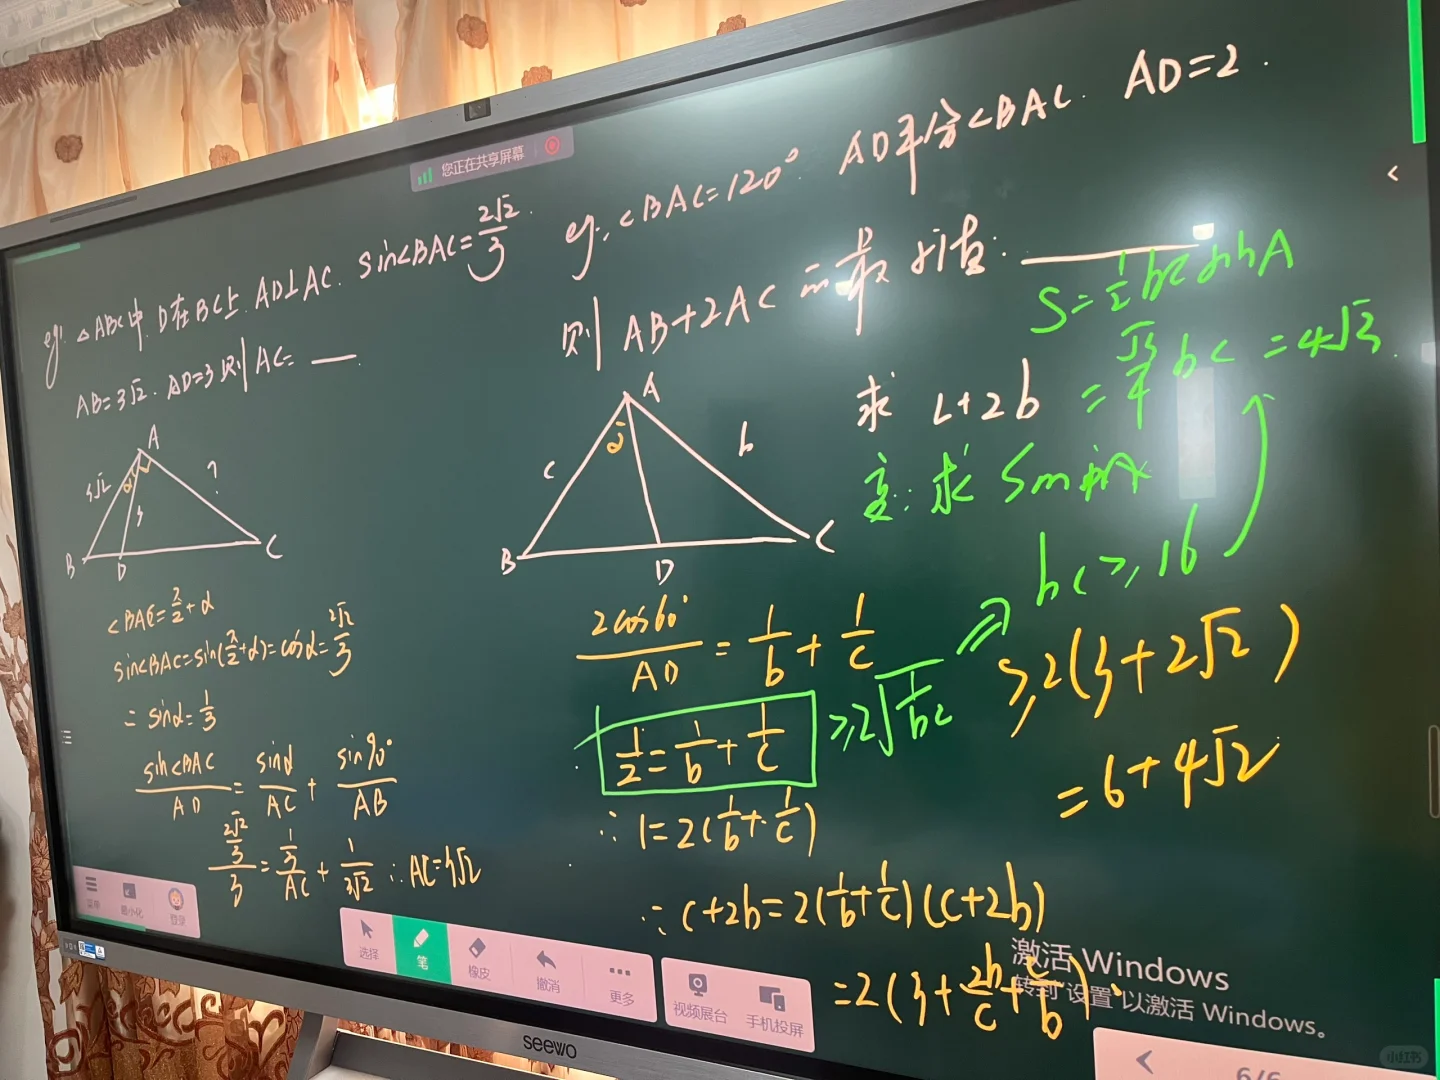 您正在共享屏幕
eg: △ABC中. D在BC上. AD⊥AC. sin<BAC=2√2/3.
AB=3√2. AD=3 则 AC= __.
A
3√2
α
3
?
B
D
C
<BAC=π/2+α
sin<BAC=sin(π/2+α)=cosα=2√2/3
= sinα=1/3
sin<BAC/AD = sinα/AC + sin90°/AB
(2√2/3)/3 = (1/3)/AC + 1/3√2 ∴AC=3√2
eg: <BAC=120°. AD平分<BAC. AD=2.
则 AB+2AC 的最小值: ____
A
c
b
B
D
C
求 c+2b
S=1/2 bc sinA
=√3/4 bc =4√3.
变: 求 Smin
bc≥16
2cos60°/AD = 1/b + 1/c
1/2=1/b+1/c ≥2√1/bc ⇒
∴ 1=2(1/b+1/c)
∴ c+2b=2(1/b+1/c)(c+2b)
=2(3+2b/c+c/b)
≥2(3+2√2)
=6+4√2
激活 Windows
转到"设置"以激活 Windows。
菜单
最小化
登录
选择
笔
橡皮
撤消
更多
视频展台
手机投屏
6/6
seewo
小红书